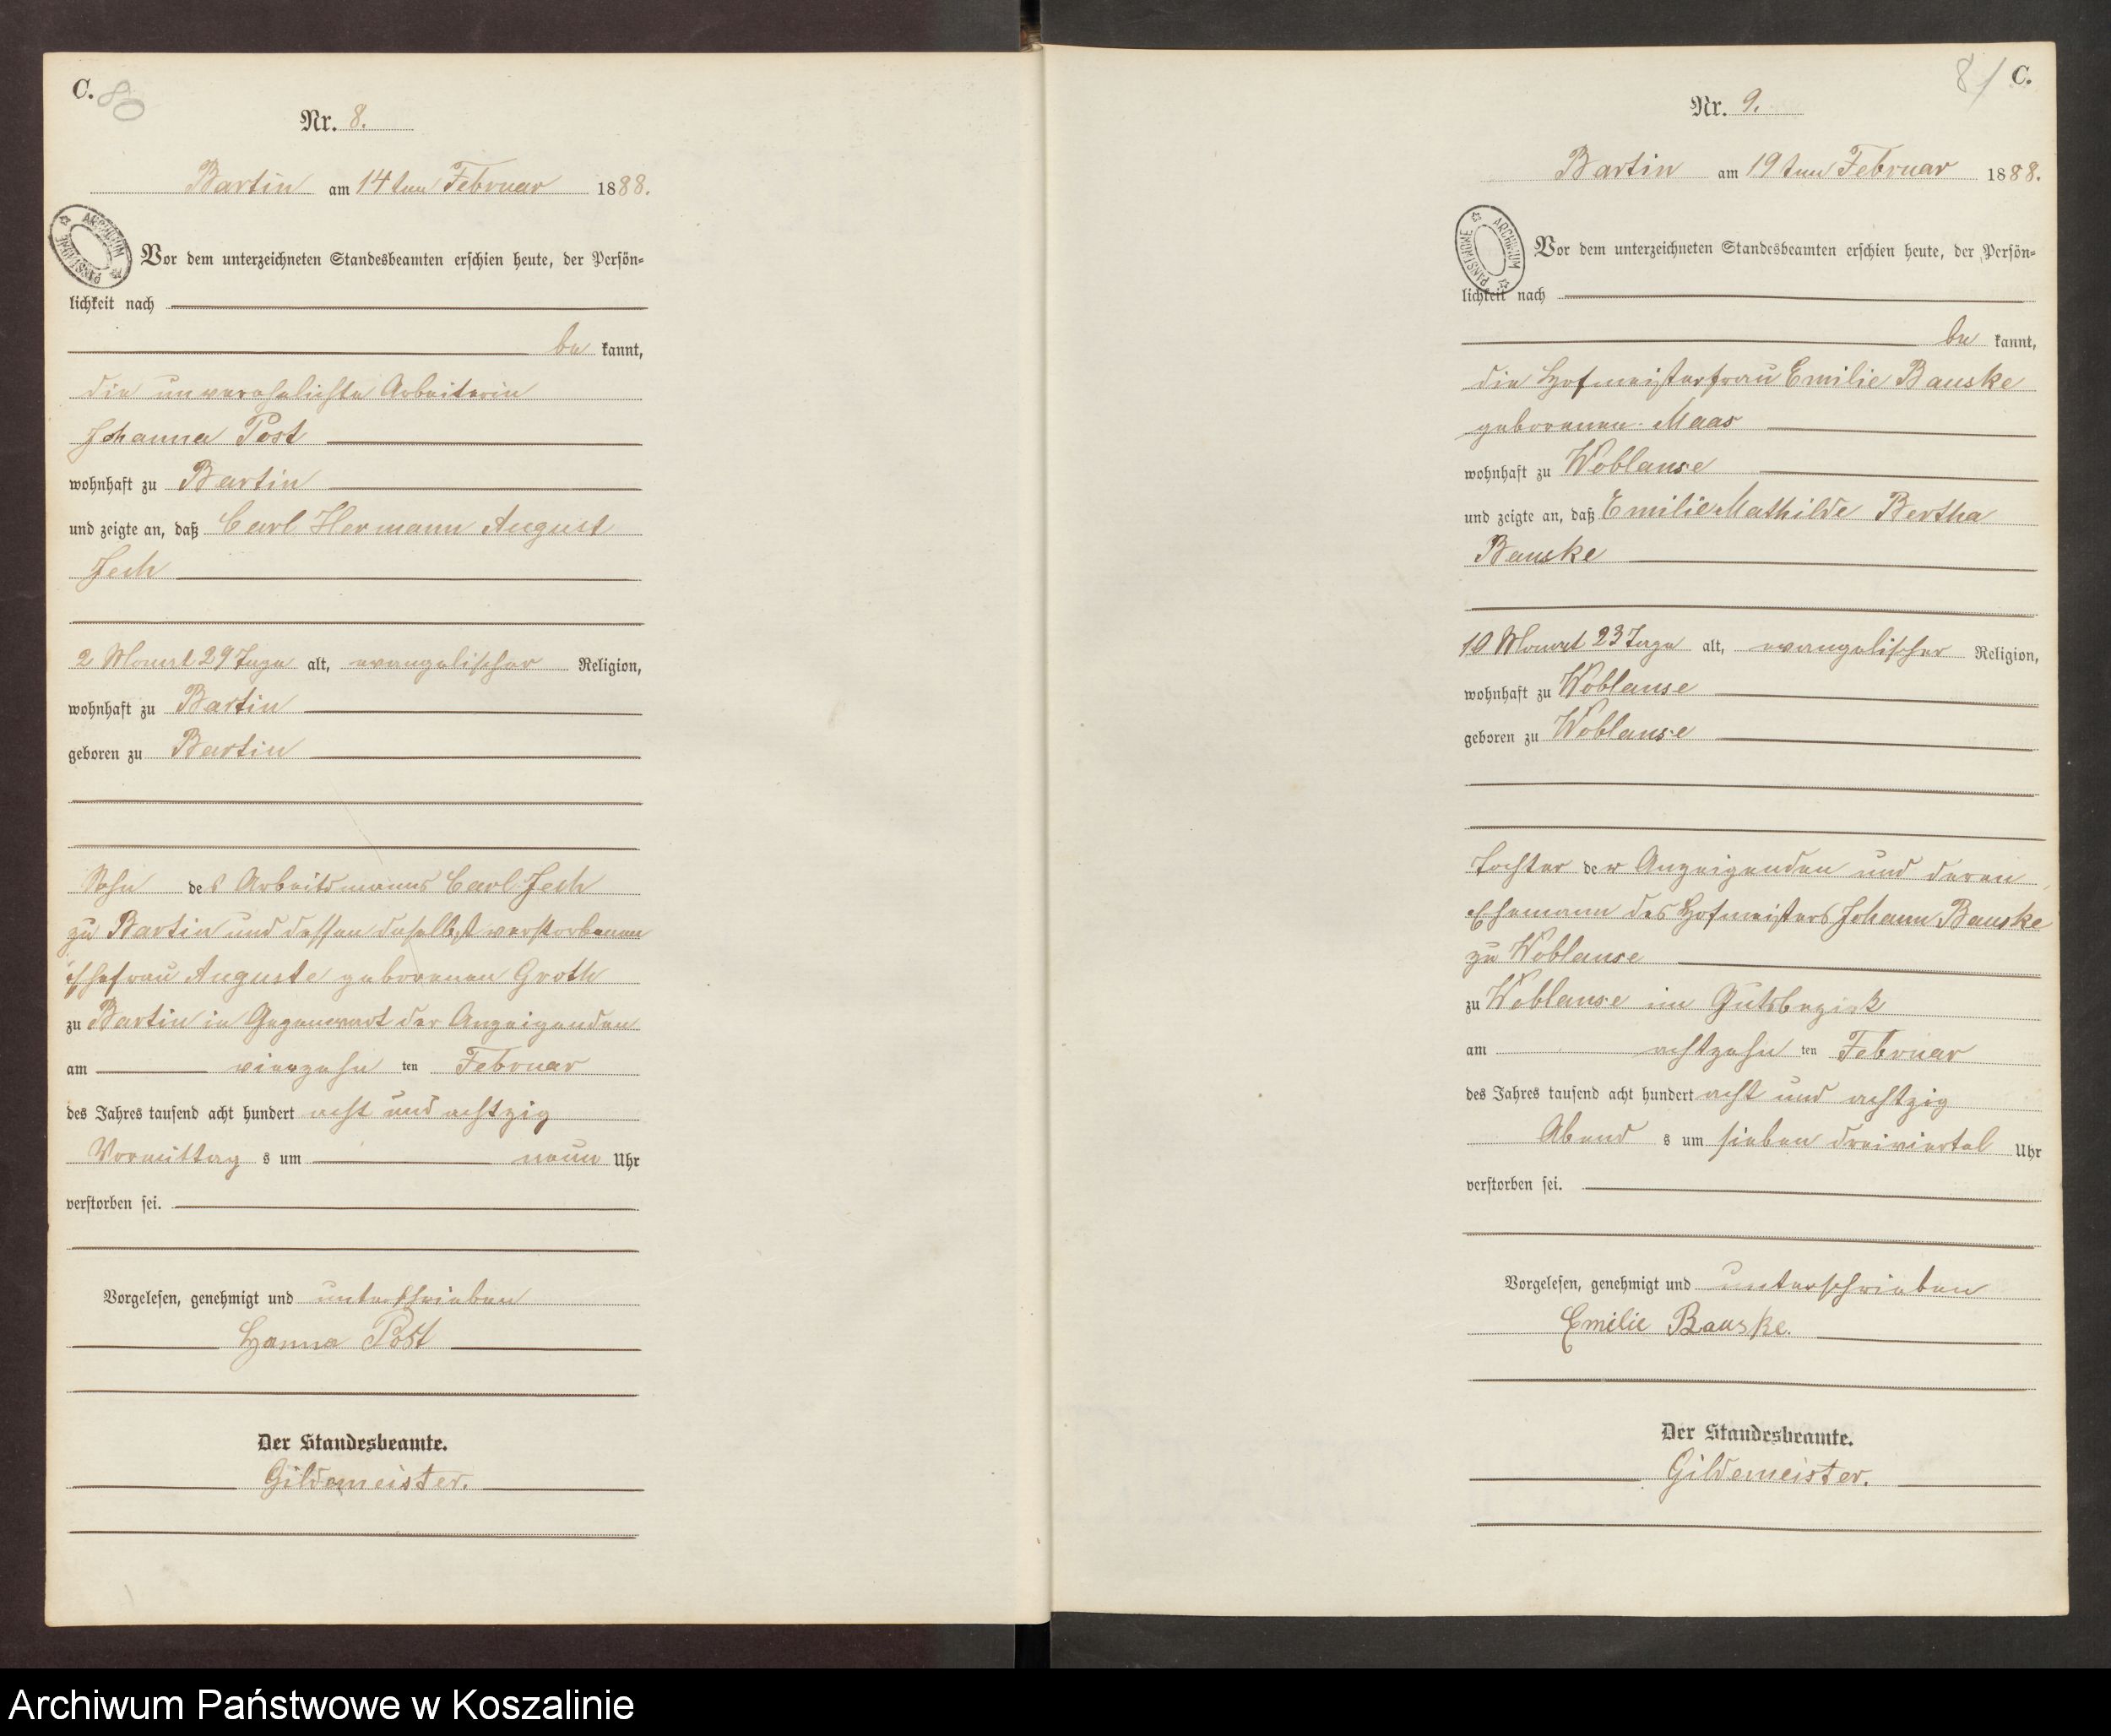 C. 80
Nr. 8.
Bartin am 14ten Februar 1888.
ARCHIWUM PAŃSTWOWE
Vor dem unterzeichneten Standesbeamten erschien heute, der Persön=
lichkeit nach
be kannt,
die unverehelichte Arbeiterin
Johanna Post
wohnhaft zu Bartin
und zeigte an, daß Carl Hermann August
Jech
2 Monat 29 Tage alt, evangelischer Religion,
wohnhaft zu Bartin
geboren zu Bartin
Sohn des Arbeitsmanns Carl Jech
zu Bartin und dessen daselbst verstorbenen
Ehefrau Auguste geborenen Groth
zu Bartin in Gegenwart der Anzeigenden
am vierzehn ten Februar
des Jahres tausend acht hundert acht und achtzig
Vormittag s um neun Uhr
verstorben sei.
Vorgelesen, genehmigt und unterschrieben
Hanna Post
Der Standesbeamte.
Gildemeister.
81 C.
Nr. 9.
Bartin am 19ten Februar 1888.
ARCHIWUM PAŃSTWOWE
Vor dem unterzeichneten Standesbeamten erschien heute, der Persön=
lichkeit nach
be kannt,
die Hofmeisterfrau Emilie Bauske
geborenen Maas
wohnhaft zu Woblanse
und zeigte an, daß Emilie Mathilde Bertha
Bauske
10 Monat 23 Tage alt, evangelischer Religion,
wohnhaft zu Woblanse
geboren zu Woblanse
Tochter der Anzeigenden und deren
Ehemann des Hofmeisters Johann Bauske
zu Woblanse
zu Woblanse im Gutsbezirk
am achtzehn ten Februar
des Jahres tausend acht hundert acht und achtzig
Abend s um sieben dreiviertel Uhr
verstorben sei.
Vorgelesen, genehmigt und unterschrieben
Emilie Bauske.
Der Standesbeamte.
Gildemeister.
Archiwum Państwowe w Koszalinie